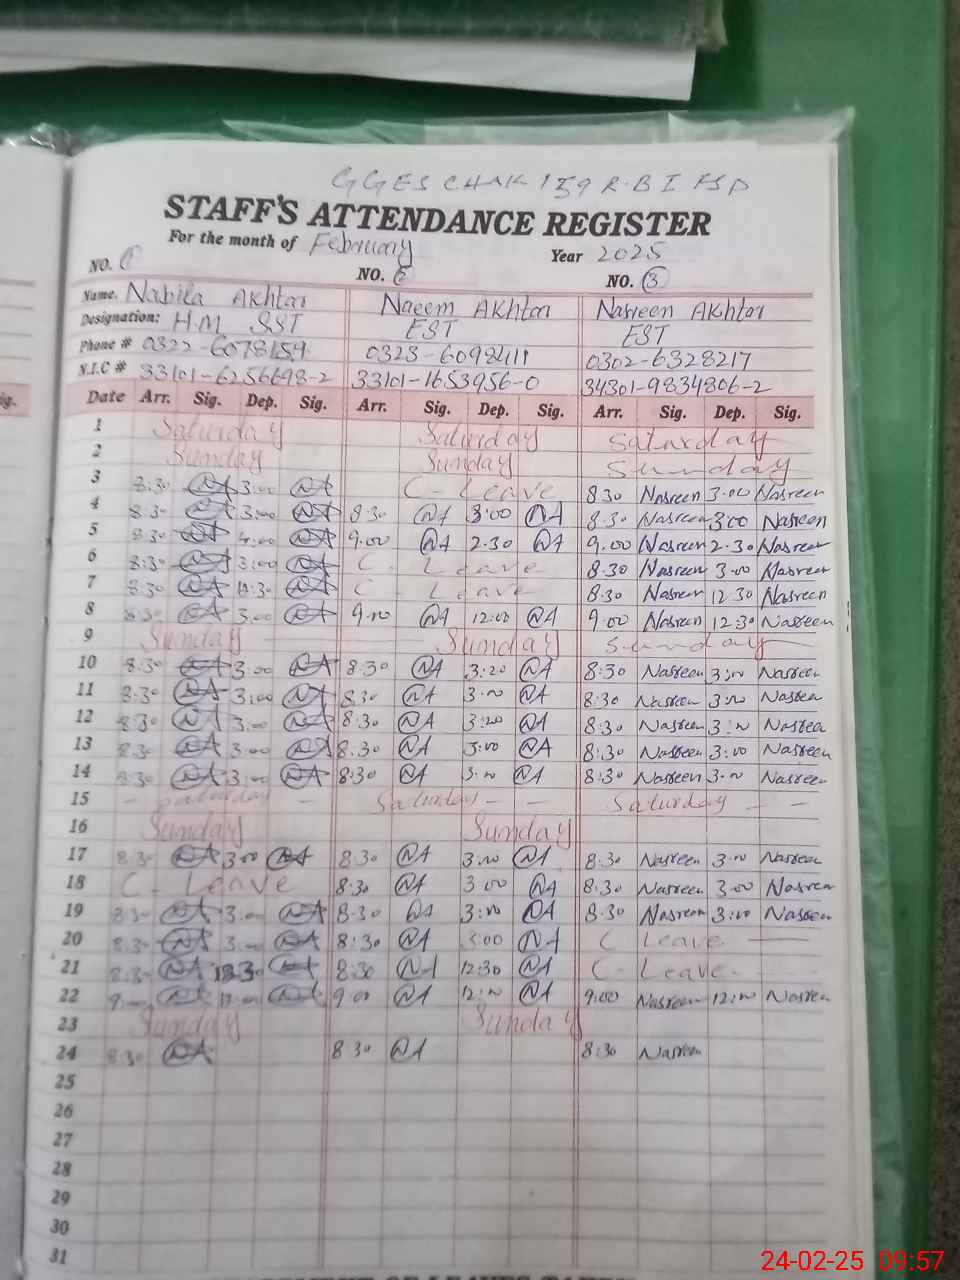 GGES CHAK 159 R.B I FSD
STAFF'S ATTENDANCE REGISTER
For the month of February Year 2025
NO. 1 NO. 2 NO. 3
Name. Nabila Akhtar Naeem Akhtar Nasreen Akhtar
Designation: H.M SST EST EST
Phone # 0322-6078154 0323-6098411 0302-6328217
N.I.C # 33101-6256698-2 33101-1653956-0 34301-9834806-2
ig. Date Arr. Sig. Dep. Sig. Arr. Sig. Dep. Sig. Arr. Sig. Dep. Sig.
1 Saturday Saturday Saturday
2 Sunday Sunday Sunday
3 8:30 NA 3:00 NA C-Leave 8:30 Nasreen 3:00 Nasreen
4 8:30 NA 3:00 NA 8:30 NA 3:00 NA 8:30 Nasreen 3:00 Nasreen
5 8:30 NA 4:00 NA 9.00 NA 2-30 NA 9.00 Nasreen 2-30 Nasreen
6 8:30 NA 3:00 NA C-Leave 8:30 Nasreen 3:00 Nasreen
7 8:30 NA 12:30 NA C-Leave 8:30 Nasreen 12:30 Nasreen
8 8:30 NA 3:00 NA 9:00 NA 12:00 NA 9:00 Nasreen 12:30 Nasreen
9 Sunday Sunday Sunday
10 8:30 NA 3:00 NA 8:30 NA 3:20 NA 8:30 Nasreen 3:00 Nasreen
11 8:30 NA 3:00 NA 8:30 NA 3:00 NA 8:30 Nasreen 3:00 Nasreen
12 8:30 NA 3:00 NA 8:30 NA 3:20 NA 8:30 Nasreen 3:00 Nasreen
13 8:30 NA 3:00 NA 8:30 NA 3:00 NA 8:30 Nasreen 3:00 Nasreen
14 8:30 NA 3:00 NA 8:30 NA 3:00 NA 8:30 Nasreen 3:00 Nasreen
15 - Saturday - Saturday - - Saturday - -
16 Sunday Sunday
17 8:30 NA 3:00 NA 8:30 NA 3:00 NA 8:30 Nasreen 3:00 Nasreen
18 C-Leave 8:30 NA 3:00 NA 8:30 Nasreen 3:00 Nasreen
19 8:30 NA 3:00 NA 8:30 NA 3:00 NA 8:30 Nasreen 3:00 Nasreen
20 8:30 NA 3:00 NA 8:30 NA 3:00 NA C Leave
21 8:30 NA 12:30 NA 8:30 NA 12:30 NA C-Leave-
22 9:00 NA 12:00 NA 9:00 NA 12:00 NA 9:00 Nasreen 12:00 Nasreen
23 Sunday Sunday
24 8:30 NA 8:30 NA 8:30 Nasreen
25
26
27
28
29
30
31
24-02-25 09:57